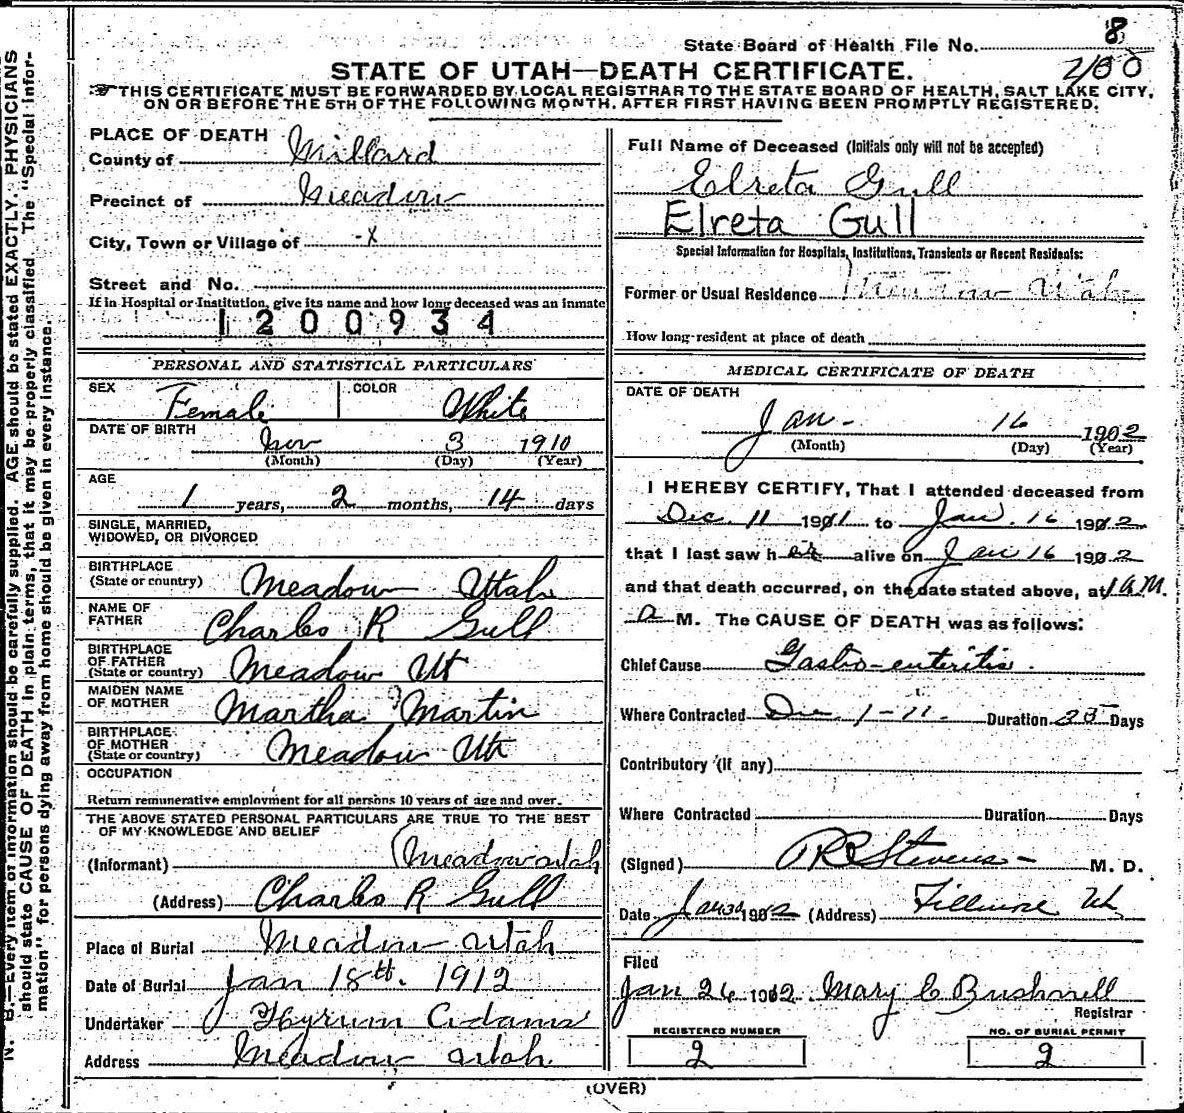 State Board of Health File No. 8
200
STATE OF UTAH—DEATH CERTIFICATE.
THIS CERTIFICATE MUST BE FORWARDED BY LOCAL REGISTRAR TO THE STATE BOARD OF HEALTH, SALT LAKE CITY,
ON OR BEFORE THE 5TH OF THE FOLLOWING MONTH, AFTER FIRST HAVING BEEN PROMPTLY REGISTERED.
N. B.—Every item of information should be carefully supplied. AGE should be stated EXACTLY. PHYSICIANS
should state CAUSE OF DEATH in plain terms, that it may be properly classified. The "Special Infor-
mation" for persons dying away from home should be given in every instance.
PLACE OF DEATH
County of Millard
Precinct of Meadow
City, Town or Village of -X
Street and No.
If in Hospital or Institution, give its name and how long deceased was an inmate
1200934
PERSONAL AND STATISTICAL PARTICULARS
SEX Female COLOR White
DATE OF BIRTH
Nov 3 1910
(Month) (Day) (Year)
AGE
1 years, 2 months, 14 days
SINGLE, MARRIED,
WIDOWED, OR DIVORCED
BIRTHPLACE
(State or country) Meadow Utah
NAME OF
FATHER Charles R Gull
BIRTHPLACE
OF FATHER
(State or country) Meadow Ut
MAIDEN NAME
OF MOTHER Martha Martin
BIRTHPLACE
OF MOTHER
(State or country) Meadow Ut
OCCUPATION
Return remunerative employment for all persons 10 years of age and over.
THE ABOVE STATED PERSONAL PARTICULARS ARE TRUE TO THE BEST
OF MY KNOWLEDGE AND BELIEF
(Informant) Meadow utah
(Address) Charles R Gull
Place of Burial Meadow utah
Date of Burial Jan 18th. 1912
Undertaker Hyrum Adams
Address Meadow utah.
Full Name of Deceased (Initials only will not be accepted)
Elreta Gull
Elreta Gull
Special Information for Hospitals, Institutions, Transients or Recent Residents:
Former or Usual Residence Meadow Utah
How long resident at place of death
MEDICAL CERTIFICATE OF DEATH
DATE OF DEATH
Jan. 16 1902
(Month) (Day) (Year)
I HEREBY CERTIFY, That I attended deceased from
Dec. 11 1901 to Jan. 16 1902
that I last saw h er alive on Jan 16 1902
and that death occurred, on the date stated above, at 1 a M.
a M. The CAUSE OF DEATH was as follows:
Chief Cause Gastro-enteritis.
Where Contracted Dec. 1-11. Duration Days
Contributory (if any)
Where Contracted Duration Days
(Signed) Stevens M. D.
Date Jan 1902 (Address) Fillmore Ut
Filed
Jan 26 1902. Mary C Bushnell
Registrar
REGISTERED NUMBER
2
NO. OF BURIAL PERMIT
2
(OVER)